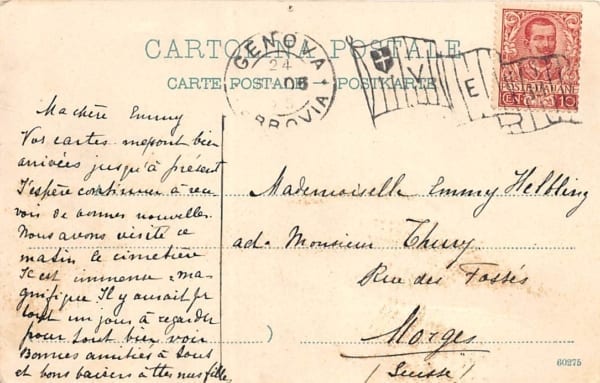 CARTOLINA POSTALE
CARTE POSTALE POSTKARTE
GENOVA
24
06
FERROVIA
POSTE ITALIANE
CENT 10
Ma chère Emmy
Vos cartes me sont bien
arrivées jusqu'à présent
J'espère continuer à rece
voir de bonnes nouvelles.
Nous avons visité ce
matin le cimetière
Ic est immense, ma-
gnifique Il y aurait pr
tout un jour à regarder
pour tout bien voir
Bonnes amitiés à tous
et bons baisers à ttes mes filles
Mademoiselle Emmy Helbling
ad. Monsieur Therry
Rue des Fossés
Morges
(Suisse)
60275